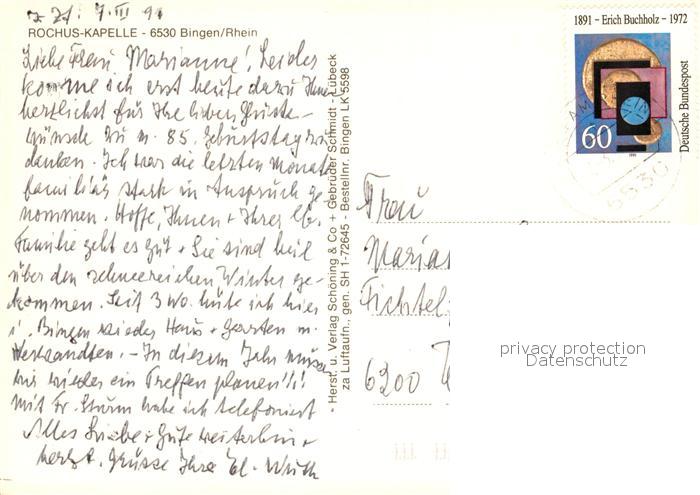 z. Zt. 7. III 91
ROCHUS-KAPELLE - 6530 Bingen/Rhein
Liebe Frau Marianne! Leider
komme ich erst heute dazu Ihnen
herzlichst für Ihre lieben Glück-
wünsche zu m. 85. Geburtstag zu
danken. Ich war die letzten Monate
familiär stark in Anspruch ge-
nommen. Hoffe, Ihnen + Ihrer lb.
Familie geht es gut + Sie sind heil
über den schneereichen Winter ge-
kommen. Seit 3 Wo. hüte ich hier
i. Bingen wieder Haus + Garten m.
Verwandten. - In diesem Jahr müssen
wir wieder ein Treffen planen!!!
Mit Fr. Sturm habe ich telefoniert
Alles Liebe + Gute weiterhin +
herzl. Grüsse Ihre El.
- Herst. u. Verlag Schöning & Co + Gebrüder Schmidt - Lübeck
za Luftaufn., gen. SH 1-72645 - Bestellnr. Bingen LK 5598
1891 - Erich Buchholz - 1972
Deutsche Bundespost
60
1991
6530
Frau
Marian
Fichtel
6200
privacy protection
Datenschutz